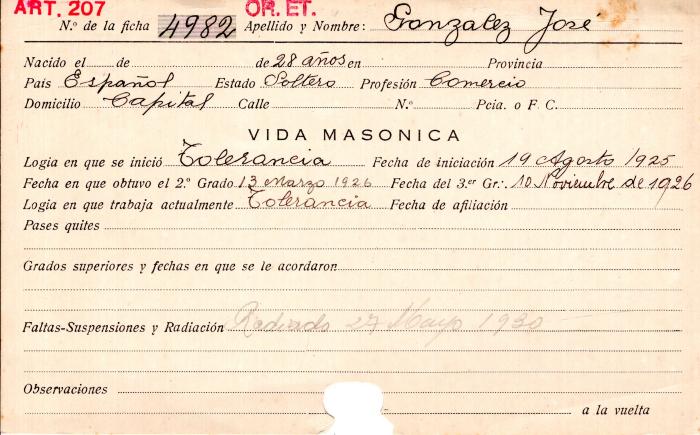 ART. 207 OR. ET.
N.º de la ficha 4982 Apellido y Nombre: Gonzalez José
Nacido el de de 28 años en Provincia
País Español Estado Soltero Profesión Comercio
Domicilio Capital Calle N.º Pcia. o F. C.
VIDA MASONICA
Logia en que se inició Tolerancia Fecha de iniciación 19 Agosto 1925
Fecha en que obtuvo el 2.º Grado 13 Marzo 1926 Fecha del 3.er Gr∴ 10 Noviembre de 1926
Logia en que trabaja actualmente Tolerancia Fecha de afiliación
Pases quites
Grados superiores y fechas en que se le acordaron
Faltas-Suspensiones y Radiación Radiado 27 Mayo 1930
Observaciones
a la vuelta